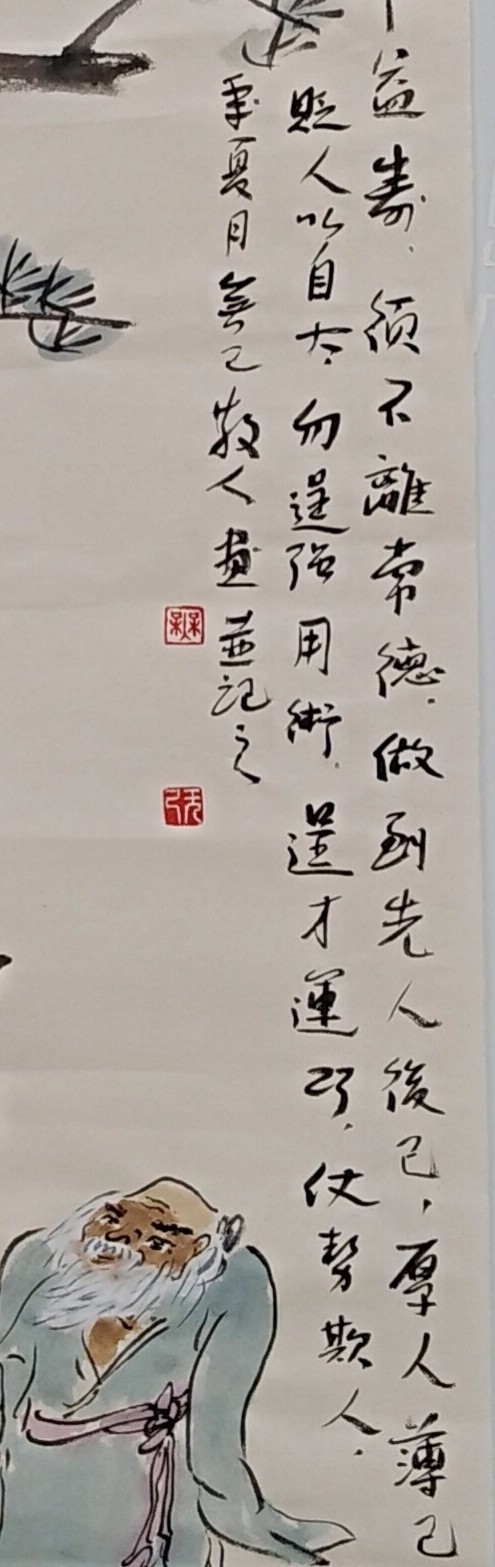 益壽，須不離常德。做到先人後己，厚人薄己
貶人以自大，勿逞強用術，逞才運巧，仗勢欺人。
夏月無己散人畫並記之